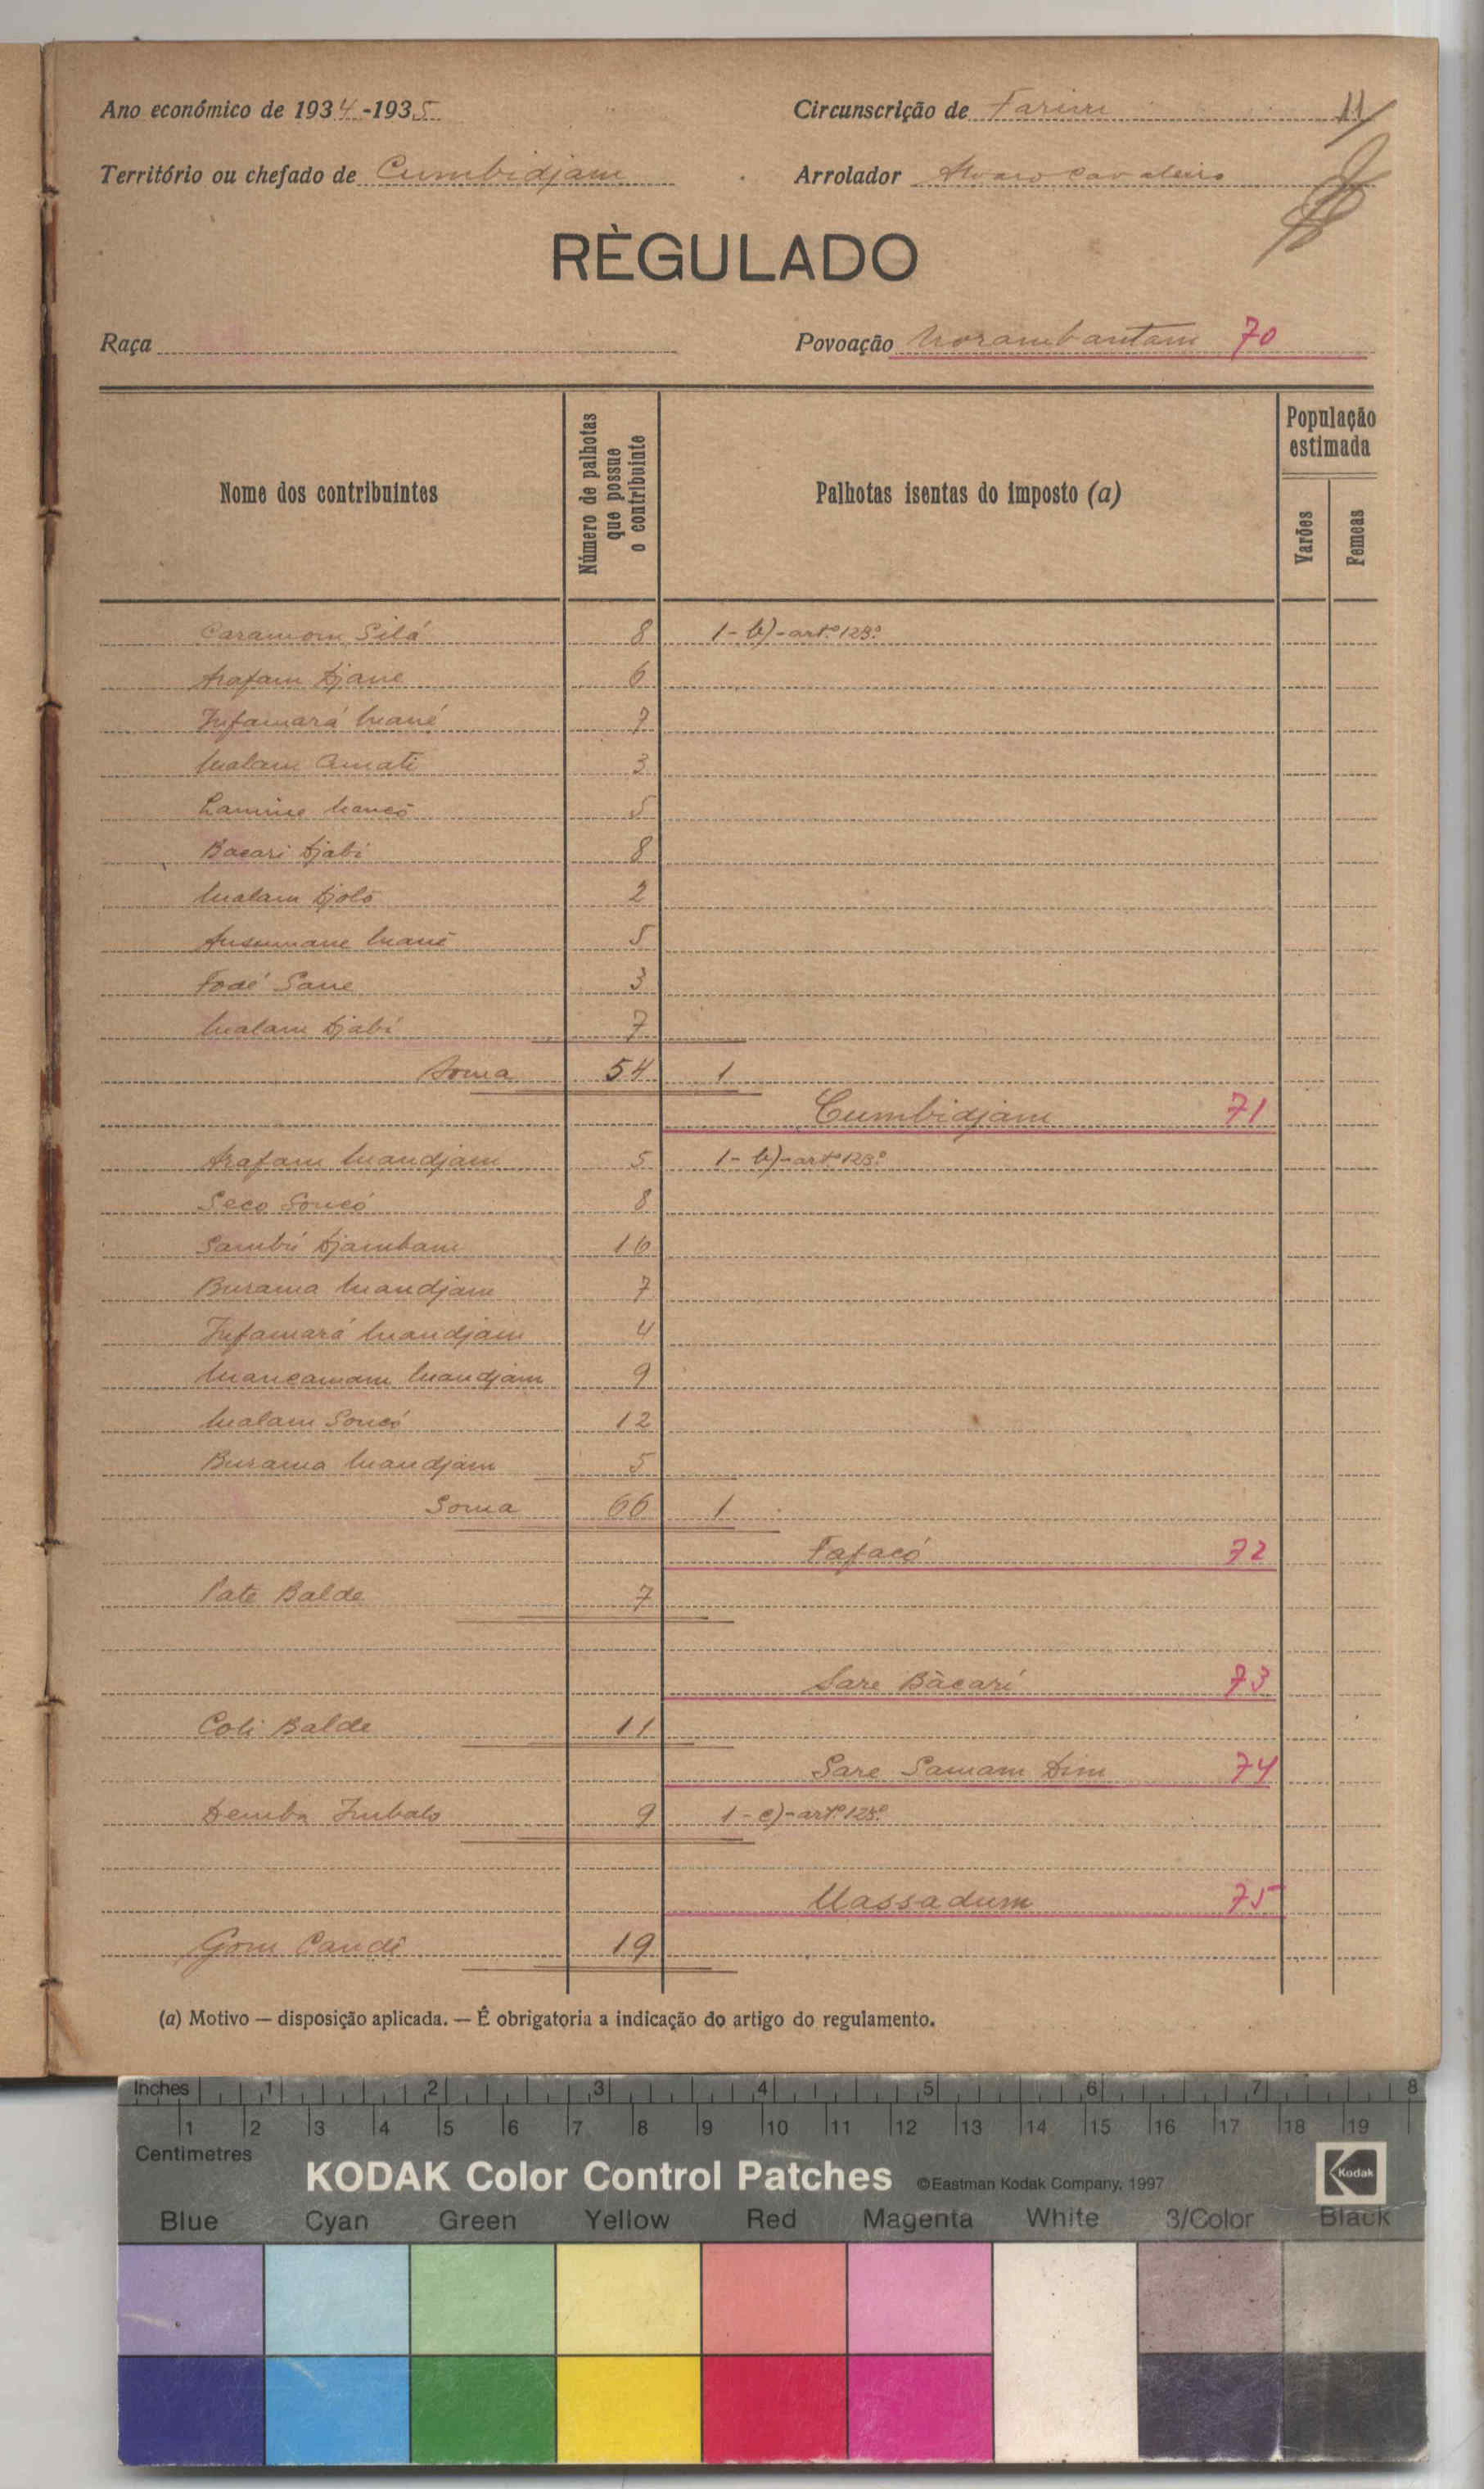 Ano económico de 1934-1935
Circunscrição de Farim 11
Território ou chefado de Cumbidjam
Arrolador Alvaro Cavaleiro
RÈGULADO
Raça
Povoação Morambantam 70
Nome dos contribuintes
Número de palhotas que possue o contribuinte
Palhotas isentas do imposto (a)
População estimada
Varões
Femeas
Caramom Silá 8 1-b)-artº 123º
Arafam Djane 6
Infamará Mané 7
Malam Amati 3
Lamine Mancó 5
Bacari Djabi 8
Malam Djoló 2
Ansumane Mané 5
Fodé Sane 3
Malam Djabi 7
Soma 54 1
Cumbidjam 71
Arafam Mandjam 5 1-b)-artº 123º
Seco Soncó 8
Sambú Djambam 16
Burama Mandjam 7
Infamará Mandjam 4
Mancamam Mandjam 9
Malam Soncó 12
Burama Mandjam 5
Soma 66 1
Fafacó 72
Pate Balde 7
Sare Bàcari 73
Coli Balde 11
Sare Samam Dim 74
Demba Imbalo 9 1-c)-artº 123º
Massadum 75
Gom Candé 19
(a) Motivo — disposição aplicada. — É obrigatoria a indicação do artigo do regulamento.
Inches 1 2 3 4 5 6 7 8
1 2 3 4 5 6 7 8 9 10 11 12 13 14 15 16 17 18 19
Centimetres
KODAK Color Control Patches ©Eastman Kodak Company, 1997 Kodak
Blue Cyan Green Yellow Red Magenta White 3/Color Black